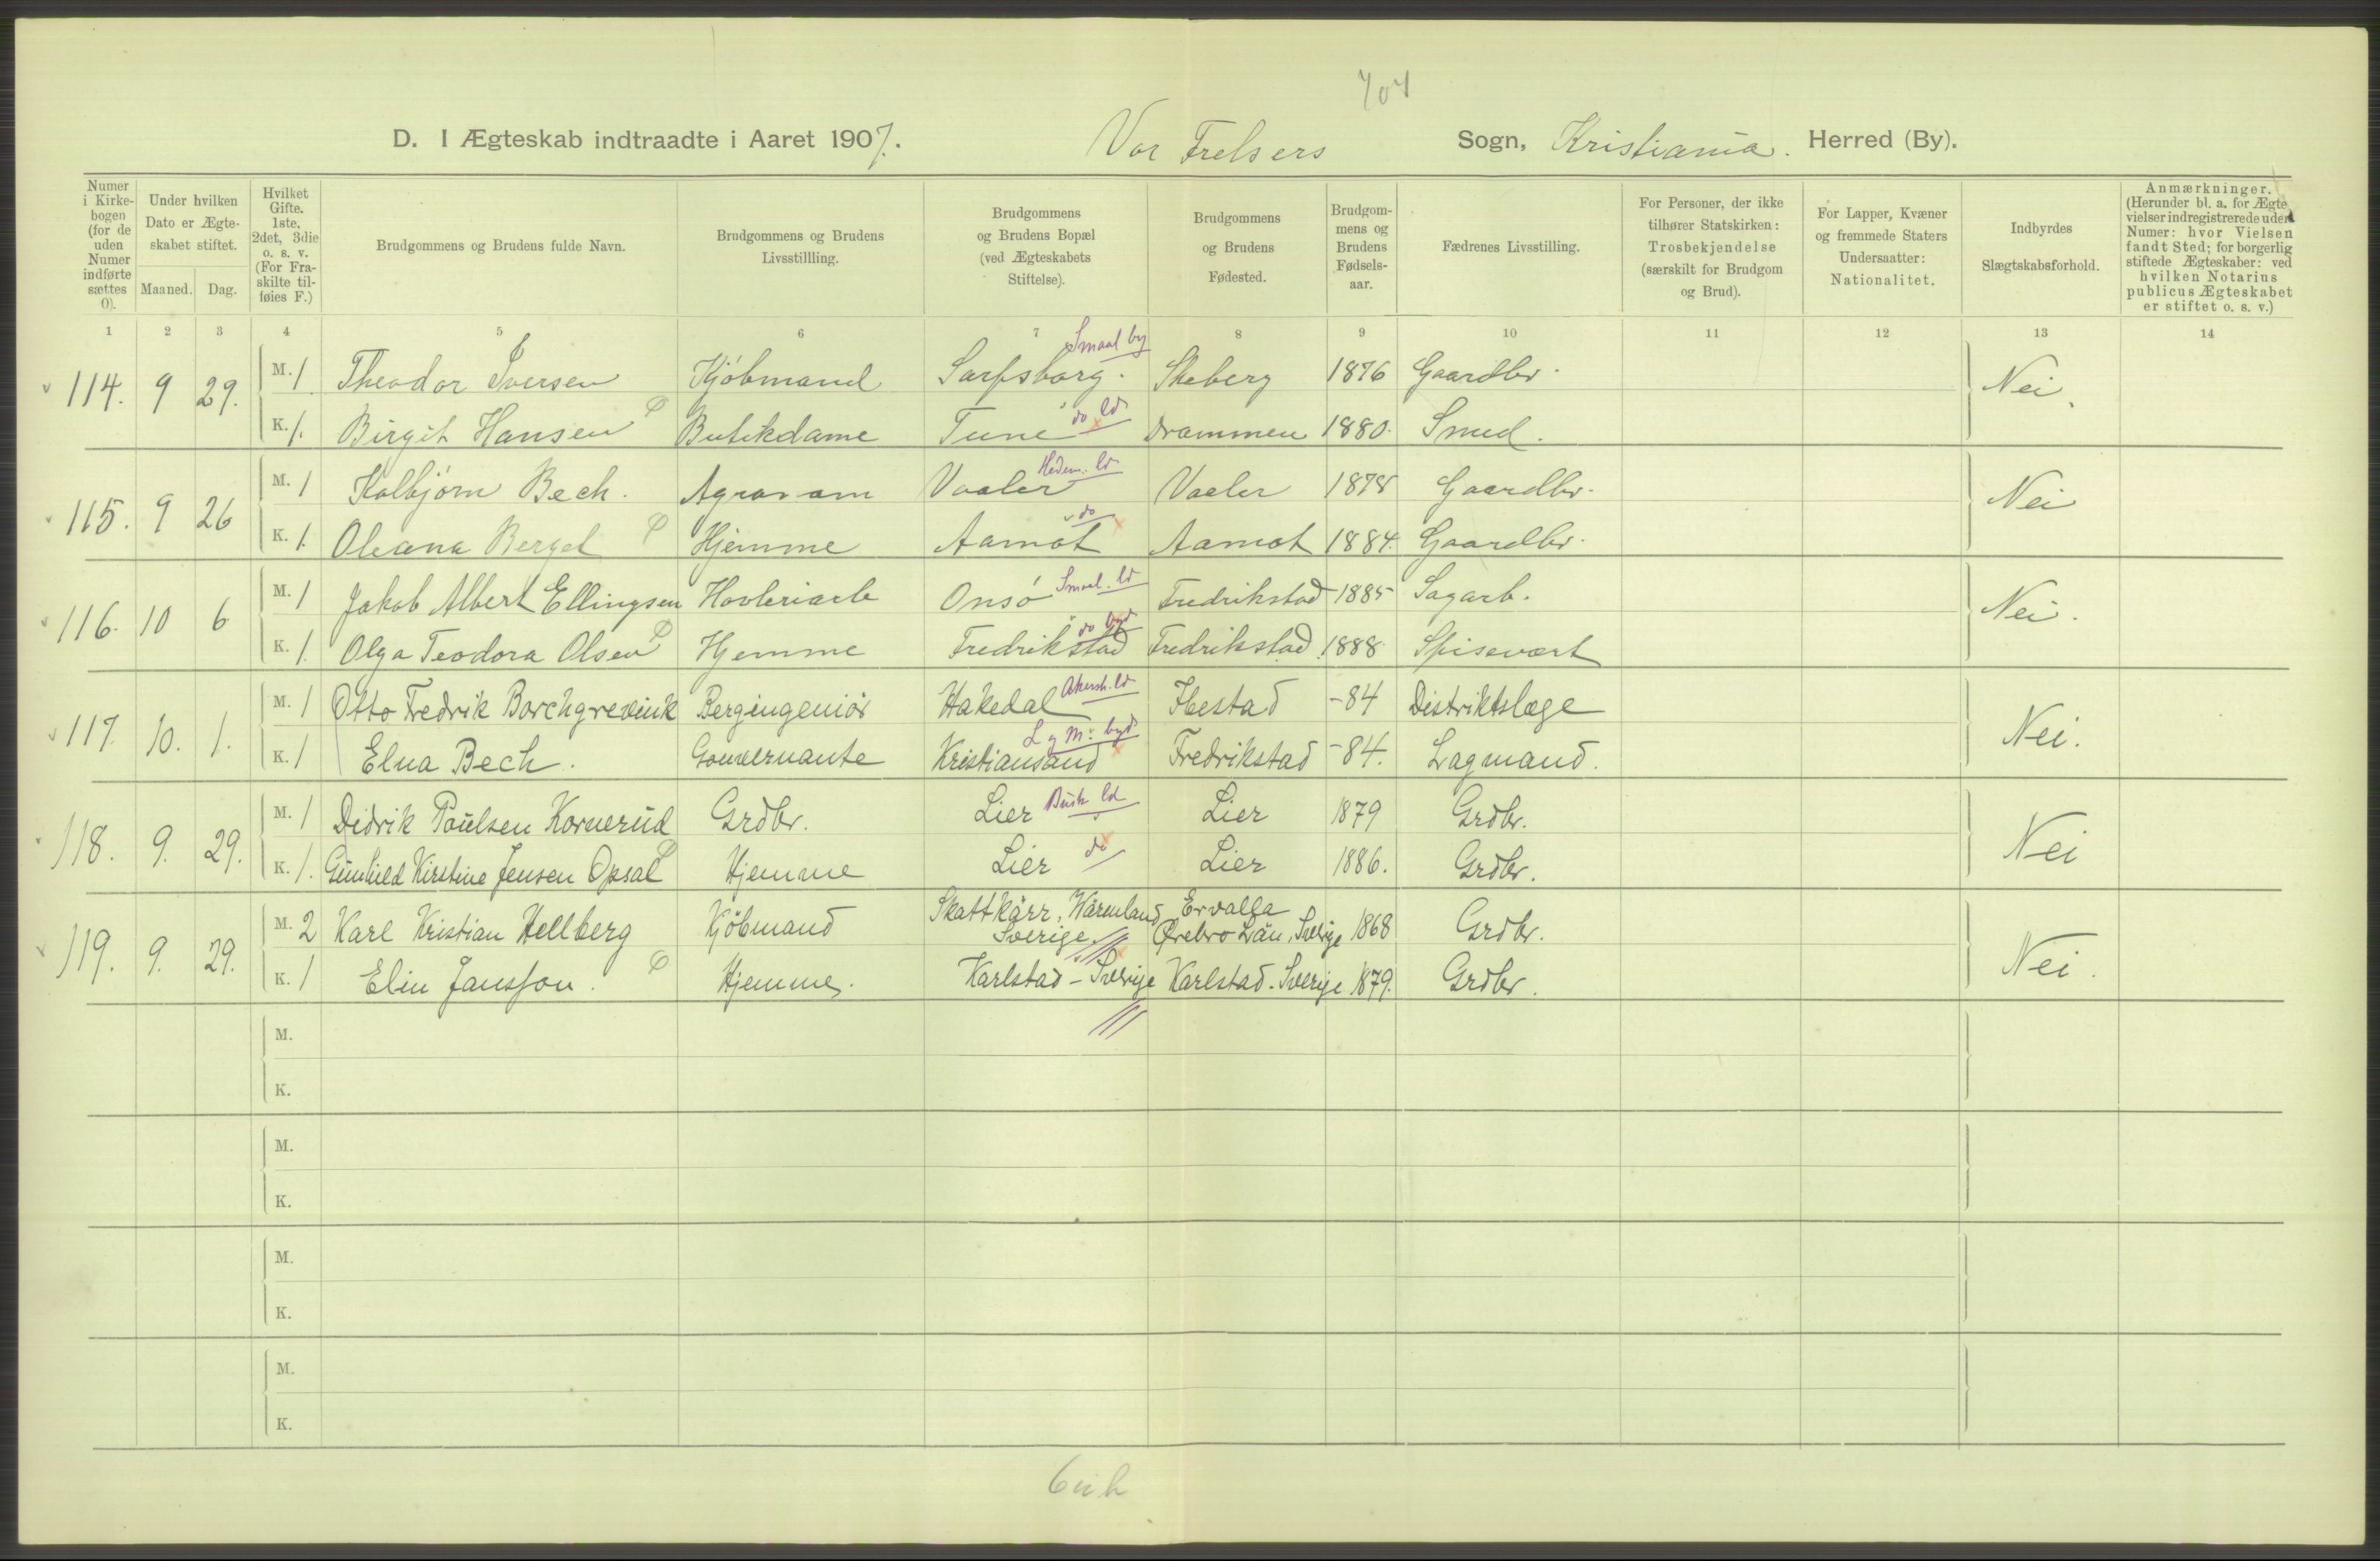 704
D. I Ægteskab indtraadte i Aaret 1907. Vor Frelsers Sogn, Kristiania. Herred (By).
Numer i Kirkebogen (for de uden Numer indførte sættes 0).
Under hvilken Dato er Ægteskabet stiftet.
Maaned. Dag.
Hvilket Gifte. 1ste. 2det, 3die o. s. v. (For Fraskilte tilføies F.)
Brudgommens og Brudens fulde Navn.
Brudgommens og Brudens Livsstillling.
Brudgommens og Brudens Bopæl (ved Ægteskabets Stiftelse).
Brudgommens og Brudens Fødested.
Brudgommens og Brudens Fødselsaar.
Fædrenes Livsstilling.
For Personer, der ikke tilhører Statskirken: Trosbekjendelse (særskilt for Brudgom og Brud).
For Lapper, Kvæner og fremmede Staters Undersaatter: Nationalitet.
Indbyrdes Slægtskabsforhold.
Anmærkninger. (Herunder bl. a. for Ægtevielser indregistrerede uden Numer: hvor Vielsen fandt Sted; for borgerlig stiftede Ægteskaber: ved hvilken Notarius publicus Ægteskabet er stiftet o. s. v.)
1 2 3 4 5 6 7 8 9 10 11 12 13 14
Smaal by
114. 9 29. M. 1 Theodor Iversen Kjöbmand Sarpsborg. Skeberg 1876 Gaardbr. Nei.
K. 1. Birgit Hansen Butikdame Tune do ld Drammen 1880. Smed.
Hedem. ld
115. 9 26 M. 1 Kolbjörn Bech. Agronom Vaaler Vaaler 1878 Gaardbr. Nei
K. 1. Oleana Berget Hjemme Aamot do Aamot 1884. Gaardbr.
116. 10 6 M. 1 Jakob Albert Ellingsen Hovleriarb Onsö Smaal. ld Fredrikstad 1885 Sagarb. Nei.
K. 1. Olga Teodora Olsen Hjemme Fredrikstad do byd Fredrikstad 1888 Spisevært
117. 10. 1. M. 1 Otto Fredrik Borchgrevink Bergingeniör Hakedal Akersh. ld Ibestad -84 Distriktslæge Nei.
K. 1 Elna Bech. Gouvernante Kristiansand L g M. byd Fredrikstad -84. Lagmand.
118. 9. 29. M. 1 Didrik Paulsen Kornerud Grdbr. Lier Busk ld Lier 1879 Grdbr. Nei
K. 1. Gunhild Kirstine Jensen Opsal Hjemme Lier do Lier 1886. Grdbr.
119. 9. 29. M. 2 Karl Kristian Hellberg Kjöbmand Skattkärr, Wärmland Sverige. Ervalla Ørebro Län, Sverige 1868 Grdbr. Nei.
K. 1 Elin Jansson. Hjemme. Karlstad - Sverige Karlstad - Sverige 1879. Grdbr.
M.
K.
M.
K.
M.
K.
M.
K.